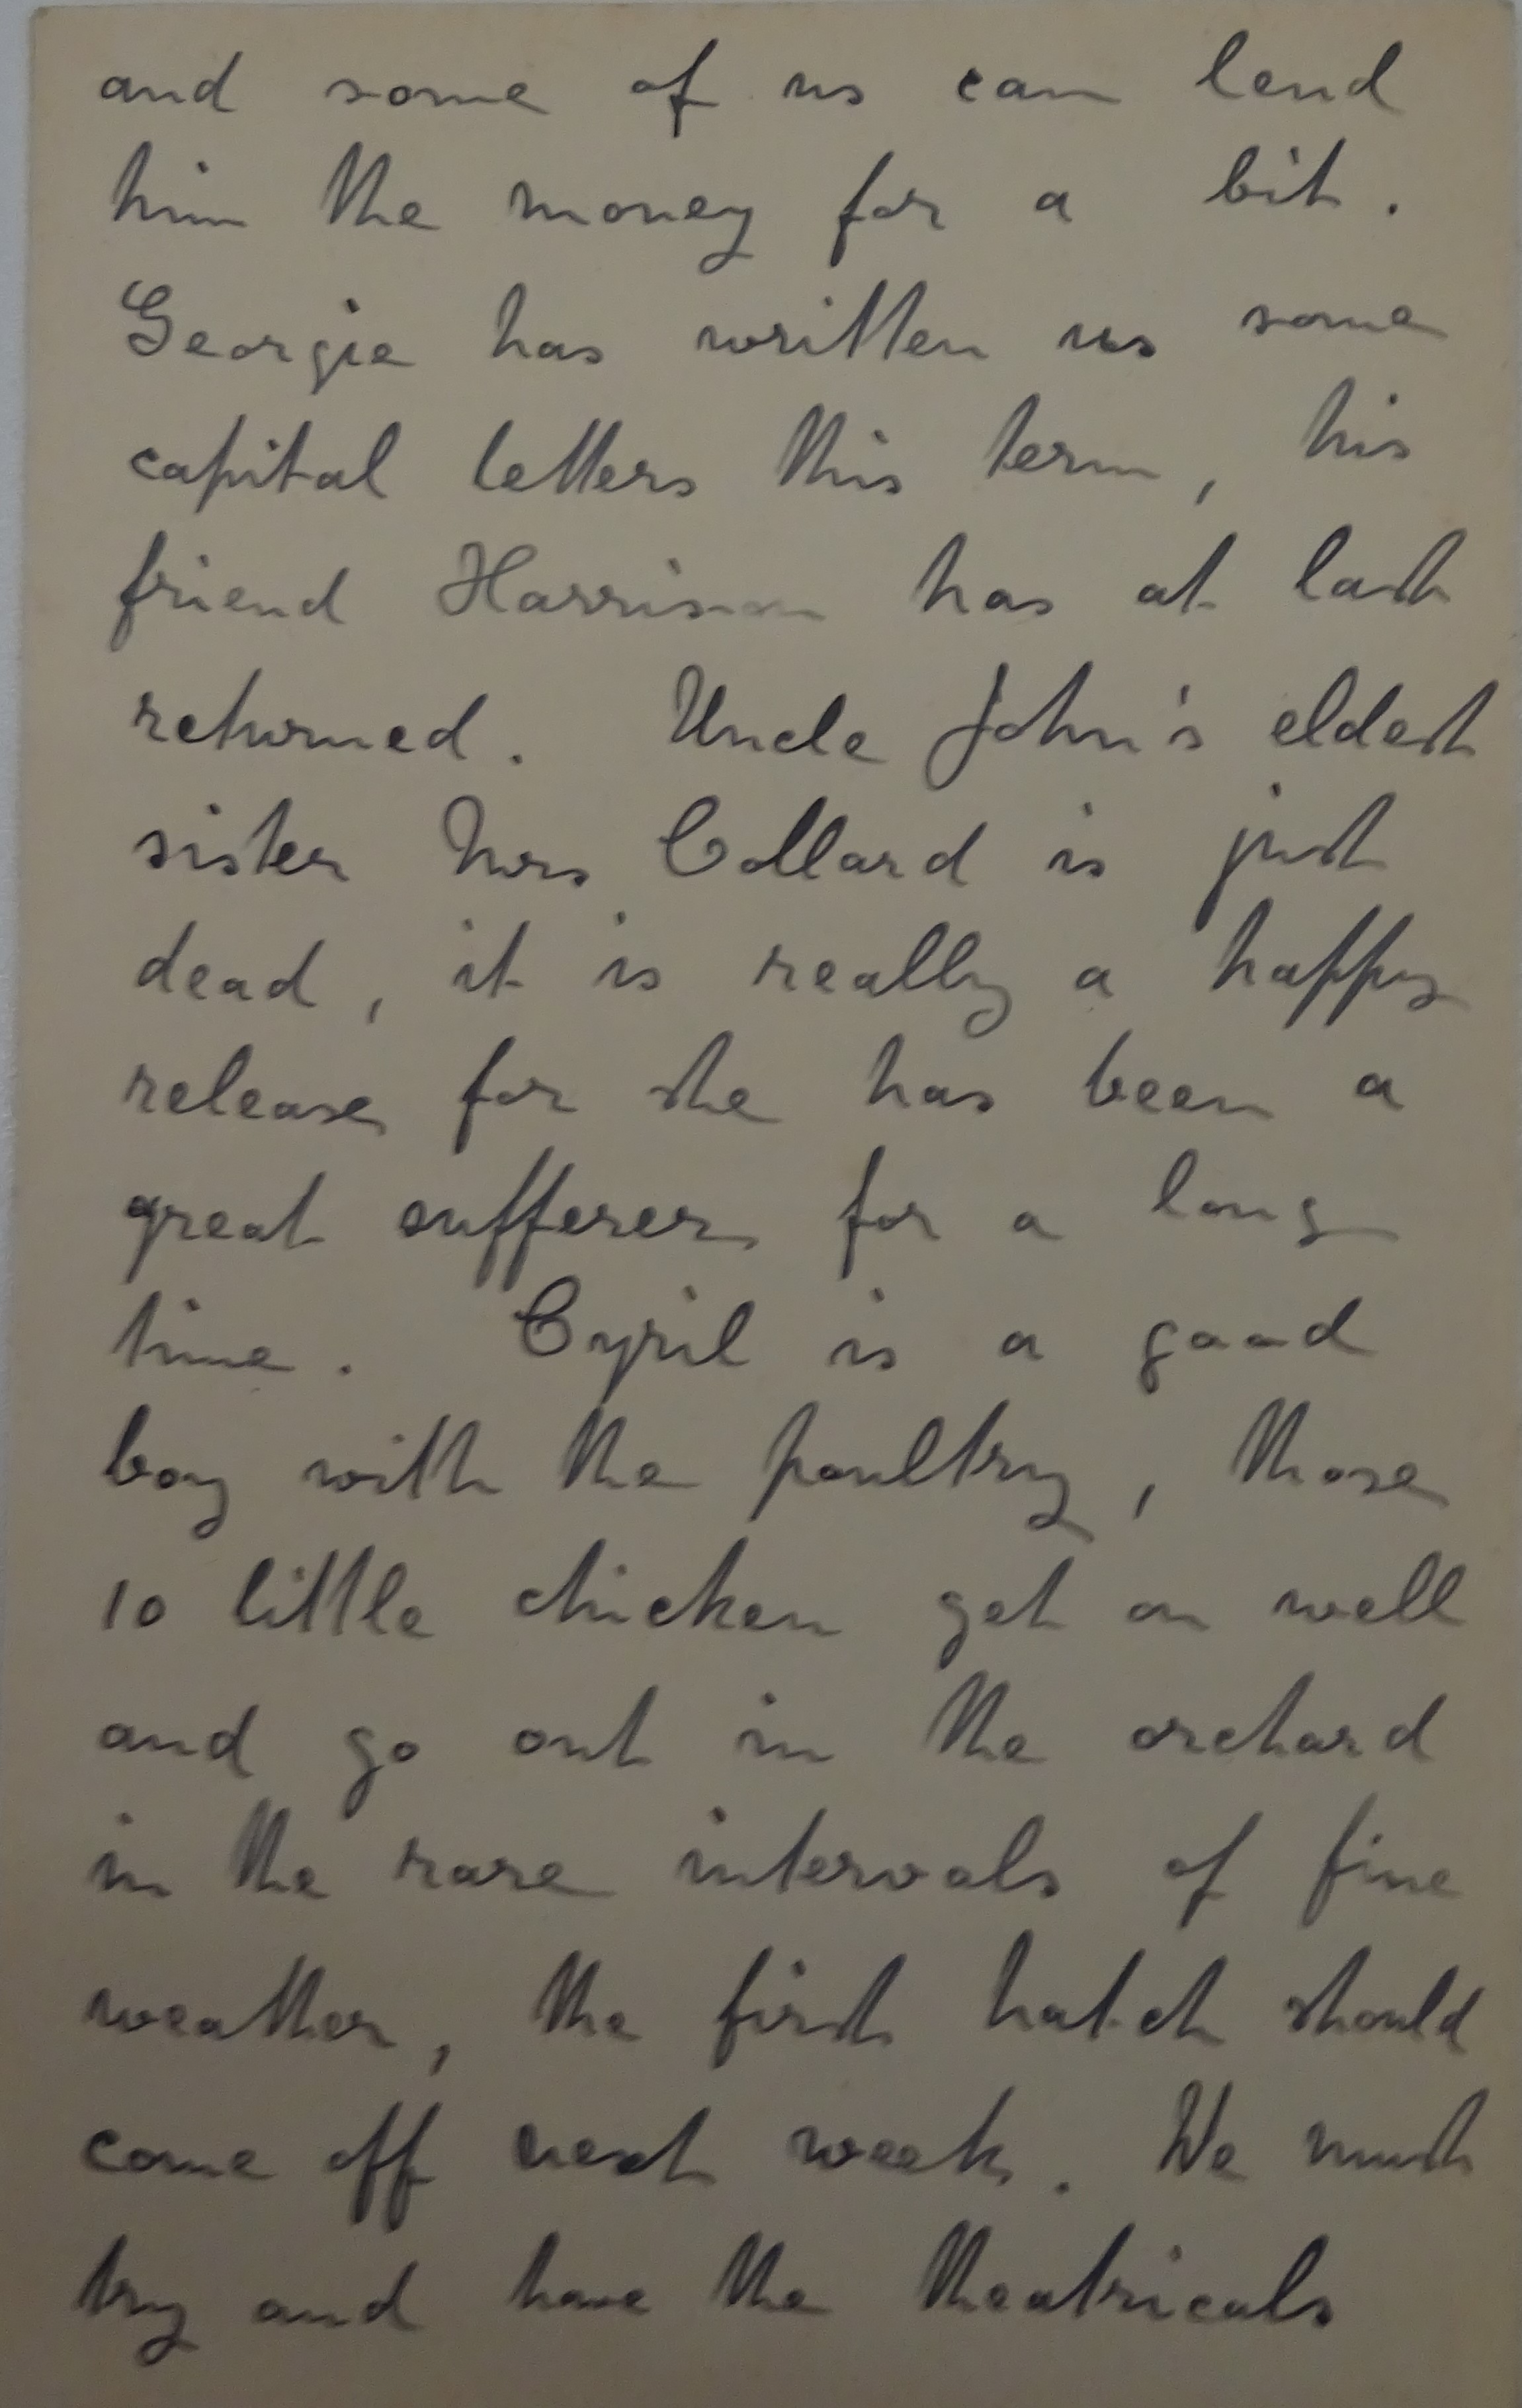 and some of us can lend
him the money for a bit.
Georgie has written us some
capital letters this term, his
friend Harrison has at last
returned. Uncle John's eldest
sister Mrs Collard is just
dead, it is really a happy
release for she has been a
great sufferer for a long
time. Cyril is a good
boy with the poultry, those
10 little chicken get on well
and go out in the orchard
in the rare intervals of fine
weather, the first hatch should
come off next week. We must
try and have the theatricals